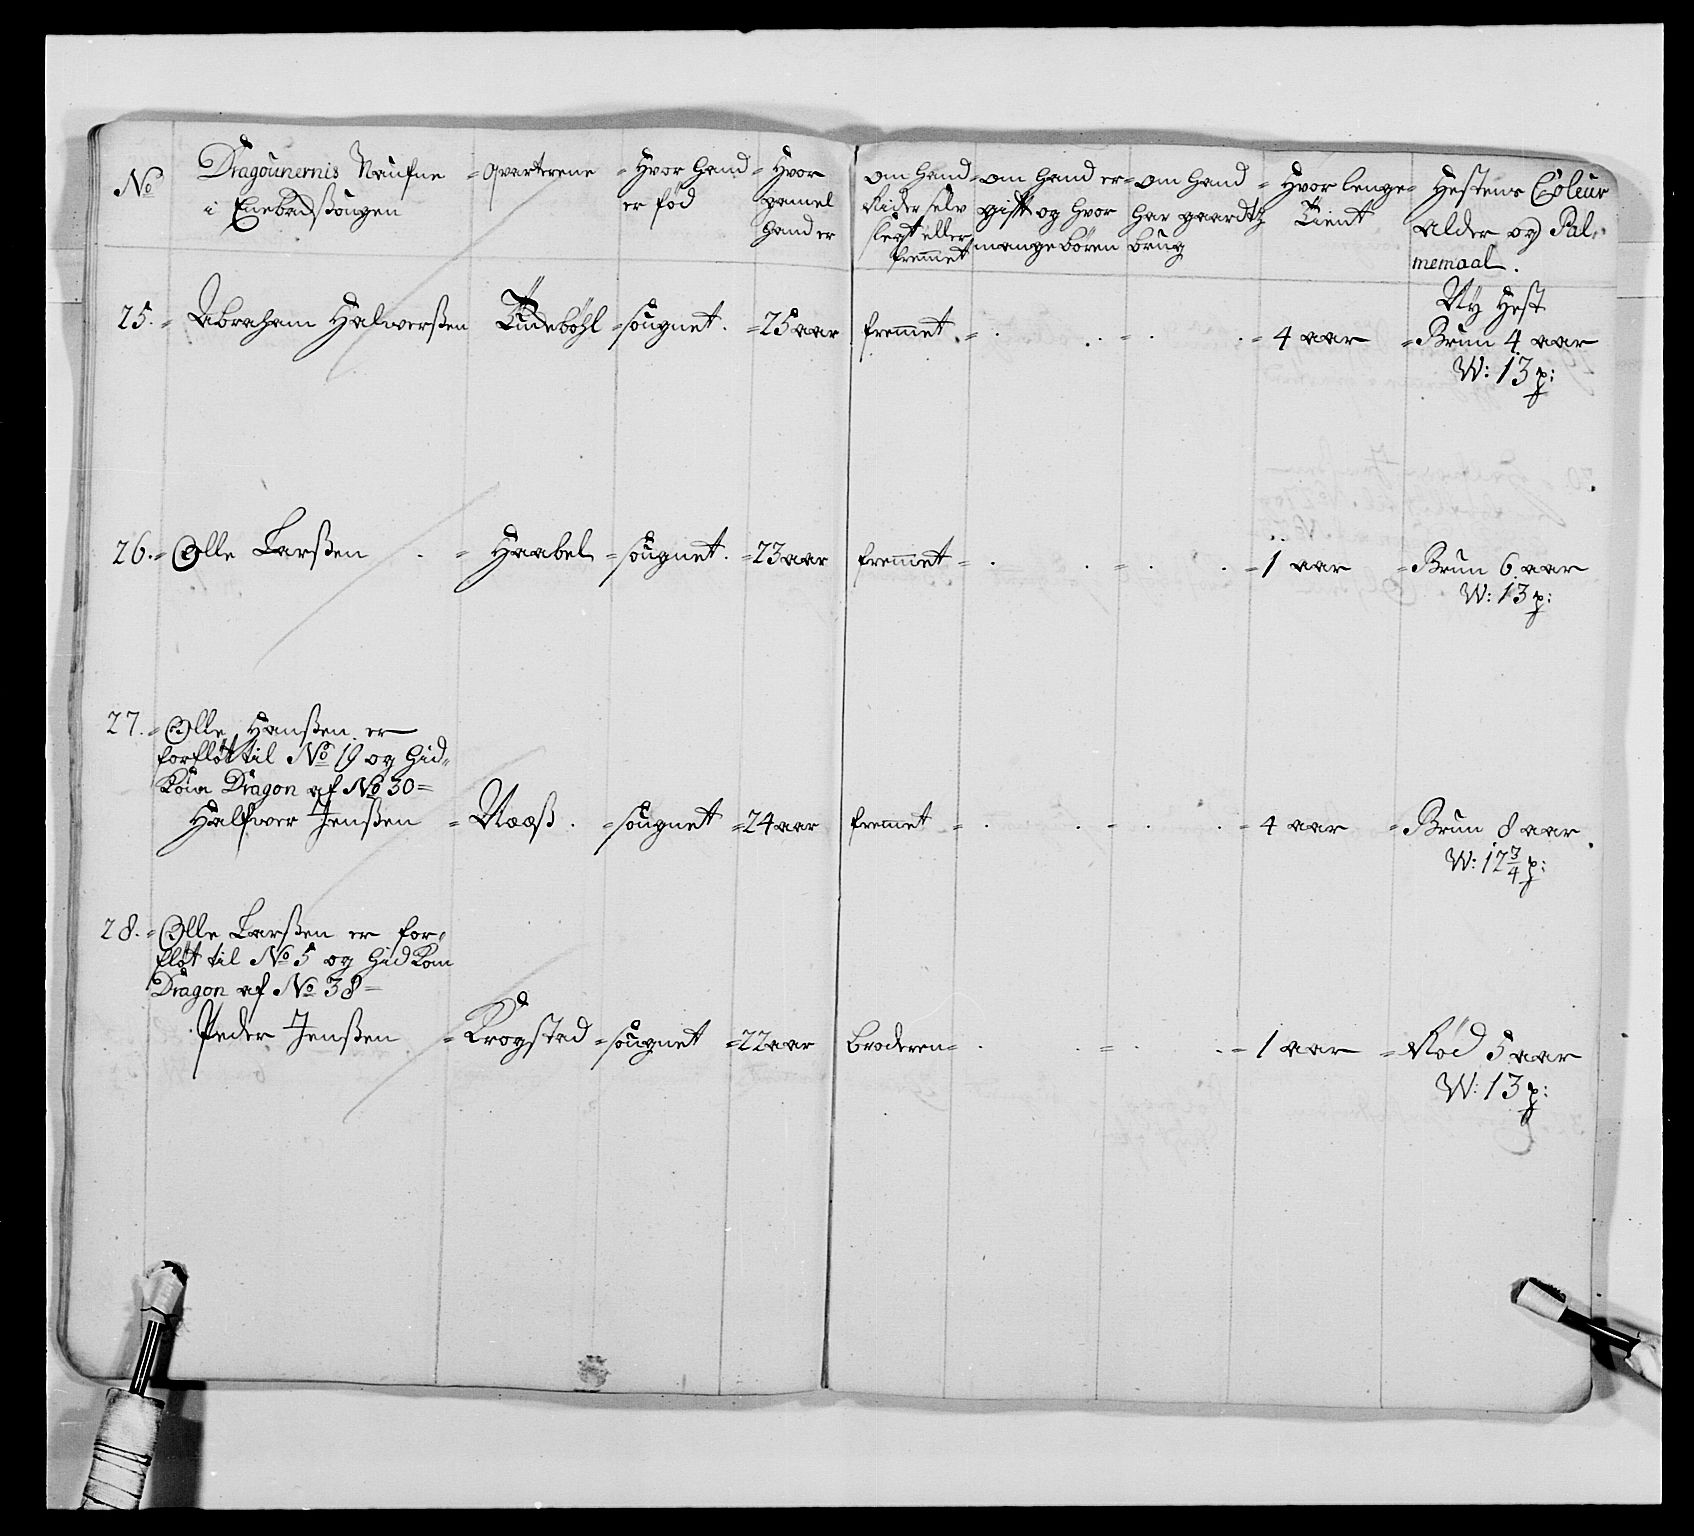 No
Dragounernis Naufne
i Enebachsougen
qvarterene
Hvor hand
er fød
Hvor
gamel
hand er
om hand
Rider selv
slegt eller
fremmet
om hand er
gift og hvor
mange børen
om hand
har gaardtz
brug
Hvor lenge
Tient
Hestens Coleur
Alder og Pal-
memaal.
25. Abraham Halwerßen Tudebøhl sougnet. 25 aar fremmet 4 aar
Ny Hest
Brun 4 aar
W: 13 p:
26. Olle Larßen Haabel sougnet. 23 aar fremmet 1 aar Brun 6 aar
W: 13 p:
27. Olle Hanßen er
forfløt til No 19 og hid-
Kom Dragon af No 30
Halfwer Jenßen Næss sougnet 24 aar fremmet 4 aar Brun 8 aar
W: 12 3/4 p:
28. Olle Larßen er for-
fløt til No 5 og hid Kom
Dragon af No 38
Peder Jenßen Krogstad sougnet 22 aar broderen 1 aar Rød 5 aar
W: 13 p: